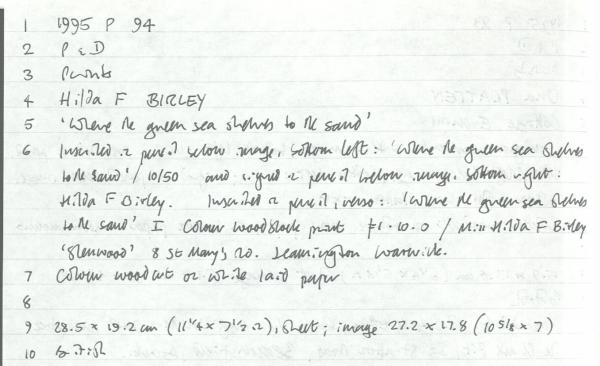 1 1995 P 94
2 P & D
3 Prints
4 Hilda F BIRLEY
5 'Where the green sea shelves to the sand'
6 Inscribed in pencil below image, bottom left: 'Where the green sea shelves
to the sand' / 10/50 and signed in pencil below image, bottom right:
Hilda F Birley. Inscribed in pencil, verso: 'Where the green sea shelves
to the sand' I Colour woodblock print £1.10.0 / Miss Hilda F Birley
'Glenwood' 8 St Mary's Rd. Leamington Warwick.
7 Colour woodcut on white laid paper
8
9 28.5 x 19.2 cm (11 1/4 x 7 1/2 in), sheet; image 27.2 x 17.8 (10 5/8 x 7)
10 British